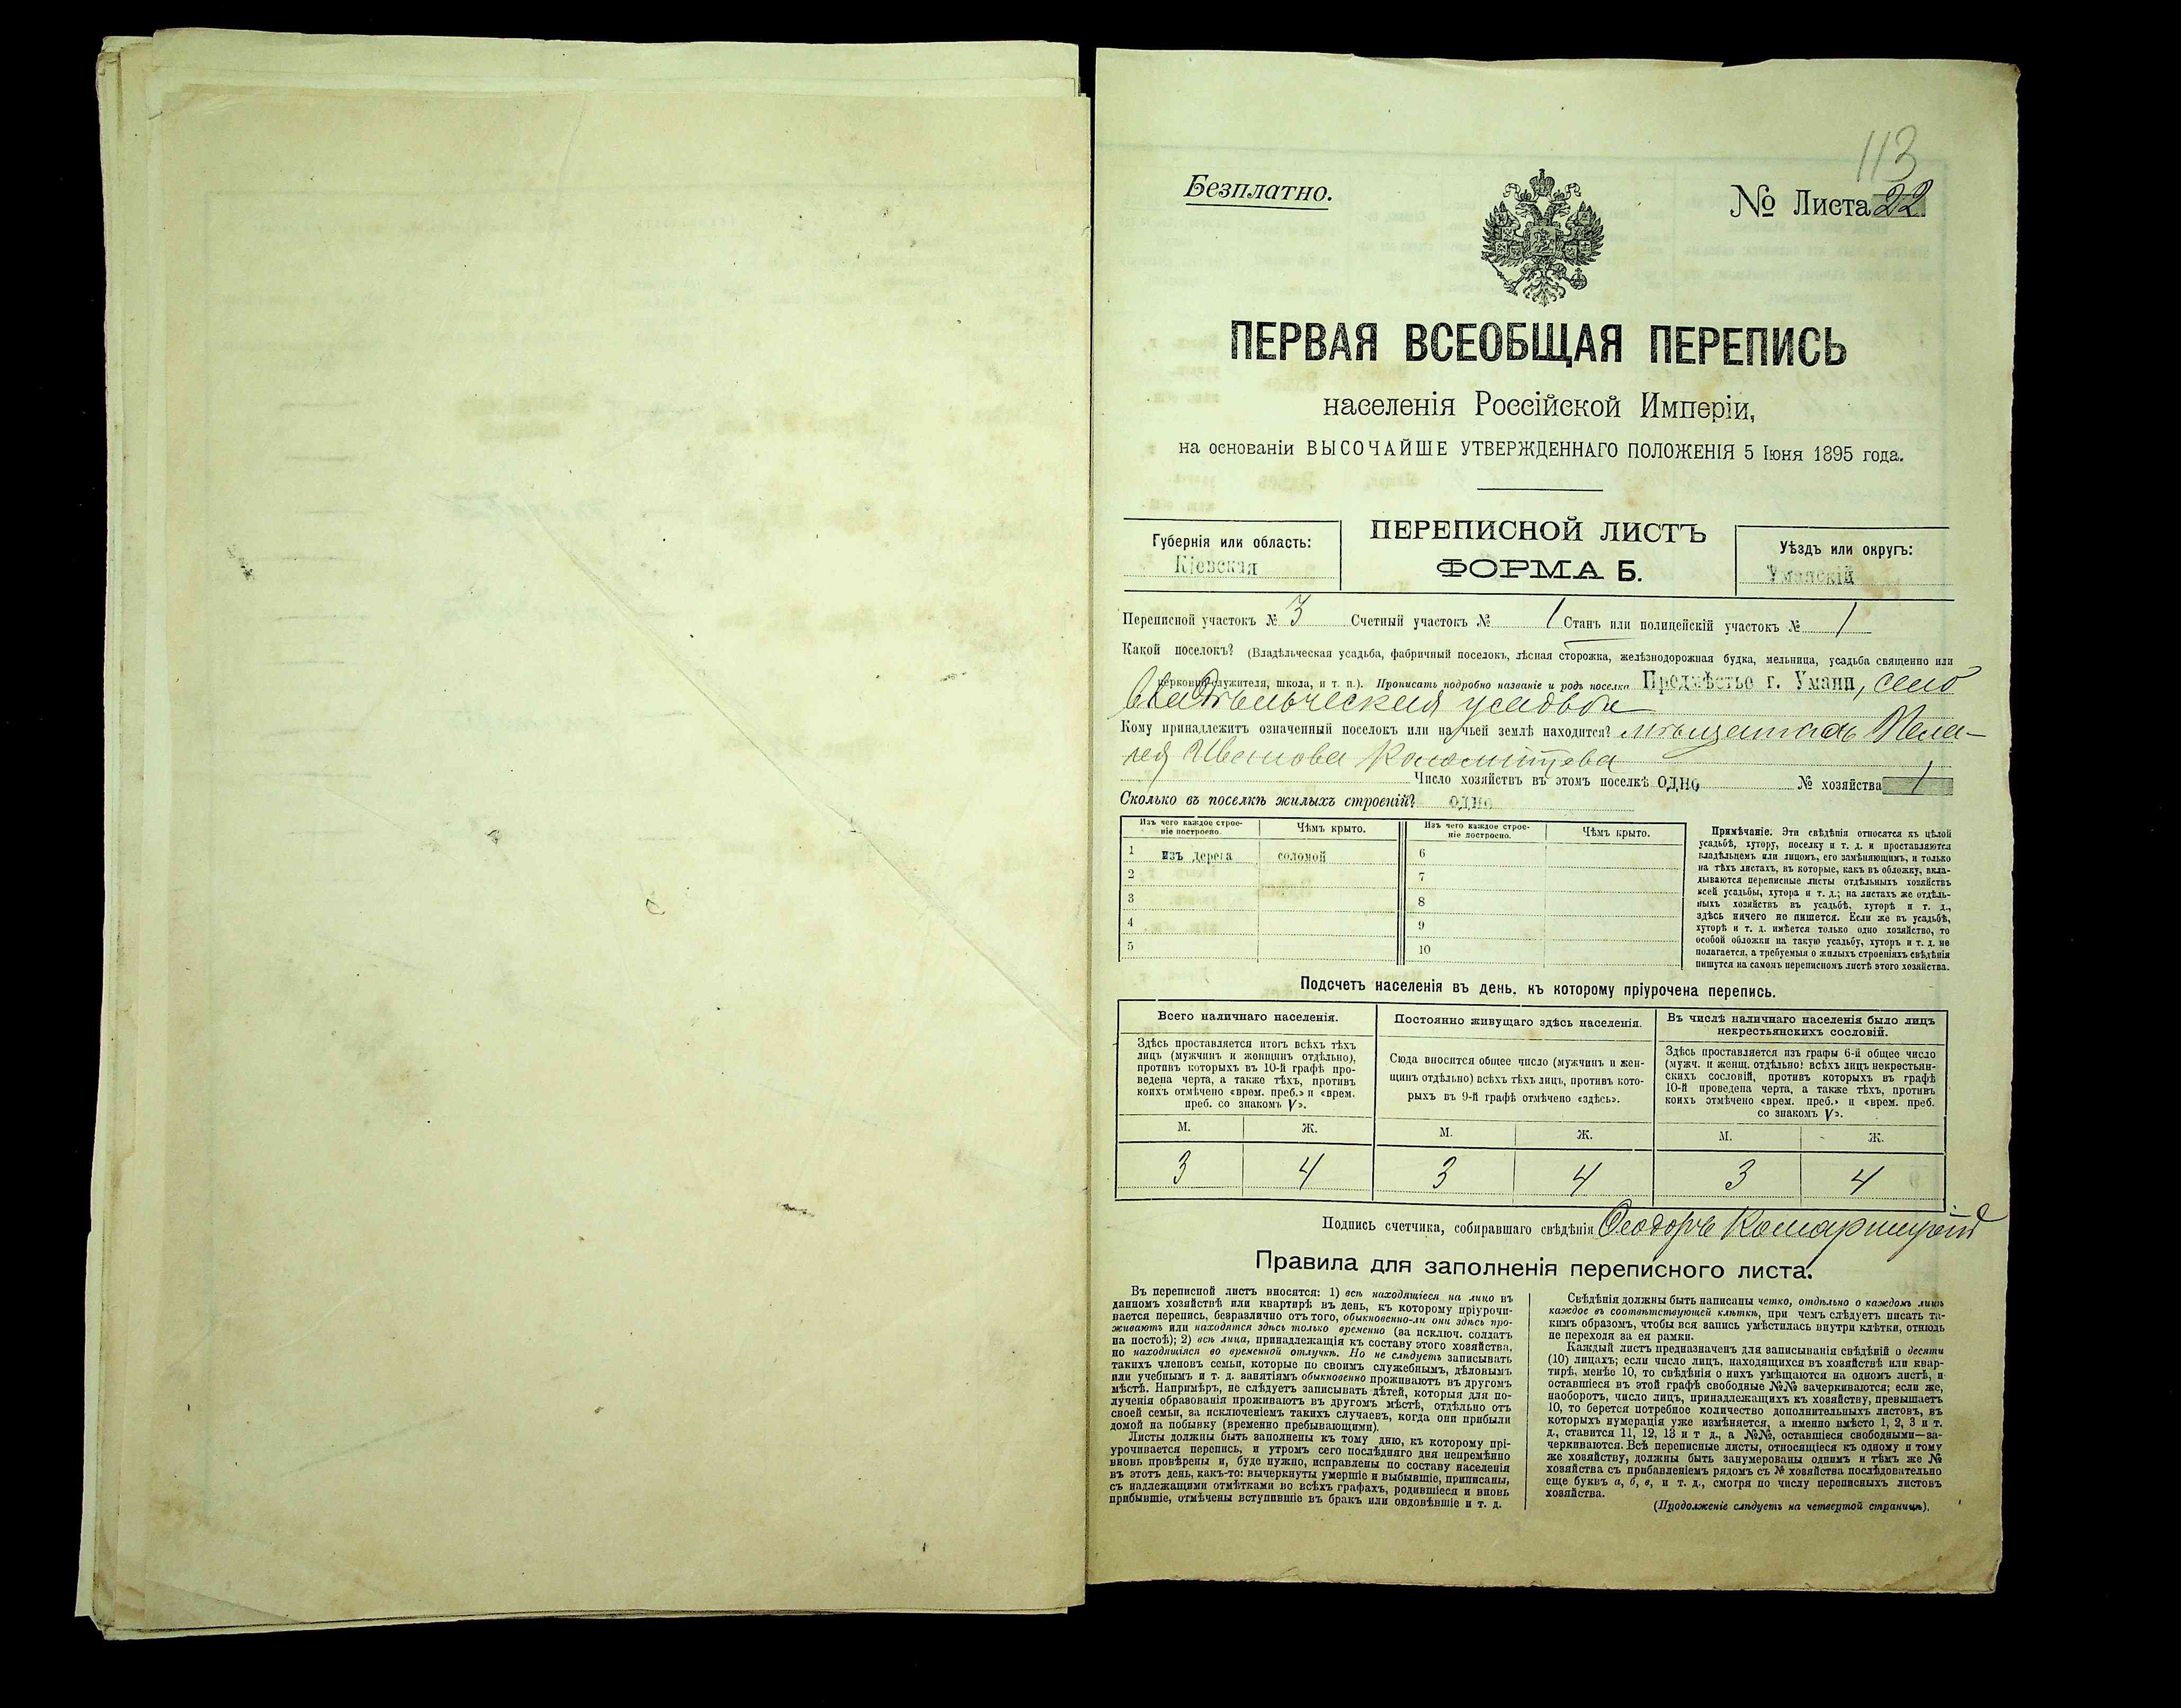 113
Безплатно.
№ Листа 22
ПЕРВАЯ ВСЕОБЩАЯ ПЕРЕПИСЬ
населенія Россійской Имперіи,
на основаніи ВЫСОЧАЙШЕ УТВЕРЖДЕННАГО ПОЛОЖЕНІЯ 5 Іюня 1895 года.
Губернія или область:
Кіевская
ПЕРЕПИСНОЙ ЛИСТЪ
ФОРМА Б.
Уѣздъ или округъ:
Уманскій
Переписной участокъ № 3 Счетный участокъ № 1 Станъ или полицейскій участокъ № 1
Какой поселокъ? (Владѣльческая усадьба, фабричный поселокъ, лѣсная сторожка, желѣзнодорожная будка, мельница, усадьба священно или
церковно-служителя, школа, и т. п.). Прописать подробно названіе и родъ поселка Предмѣстье г. Умани,
владѣльческая усадьба
Кому принадлежитъ означенный поселокъ или на чьей землѣ находится? Пела-
гея Иванова
Число хозяйствъ въ этомъ поселкѣ одно № хозяйства 1
Сколько въ поселкѣ жилыхъ строеній? одно
Изъ чего каждое строе-
ніе построено.
Чѣмъ крыто.
Изъ чего каждое строе-
ніе построено.
Чѣмъ крыто.
1 изъ дерева соломой 6
2 7
3 8
4 9
5 10
Примѣчаніе. Эти свѣдѣнія относятся къ цѣлой
усадьбѣ, хутору, поселку и т. д. и проставляются
владѣльцемъ или лицомъ, его замѣняющимъ, и только
на тѣхъ листахъ, въ которые, какъ въ обложку, вкла-
дываются переписные листы отдѣльныхъ хозяйствъ
всей усадьбы, хутора и т. д.; на листахъ же отдѣль-
ныхъ хозяйствъ въ усадьбѣ, хуторѣ и т. д.,
здѣсь ничего не пишется. Если же въ усадьбѣ,
хуторѣ и т. д. имѣется только одно хозяйство, то
особой обложки на такую усадьбу, хуторъ и т. д. не
полагается, а требуемыя о жилыхъ строеніяхъ свѣдѣнія
пишутся на самомъ переписномъ листѣ этого хозяйства.
Подсчетъ населенія въ день, къ которому пріурочена перепись.
Всего наличнаго населенія.
Здѣсь проставляется итогъ всѣхъ тѣхъ
лицъ (мужчинъ и женщинъ отдѣльно),
противъ которыхъ въ 10-й графѣ про-
ведена черта, а также тѣхъ, противъ
коихъ отмѣчено «врем. преб.» и «врем.
преб. со знакомъ V».
Постоянно живущаго здѣсь населенія.
Сюда вносится общее число (мужчинъ и жен-
щинъ отдѣльно) всѣхъ тѣхъ лицъ, противъ кото-
рыхъ въ 9-й графѣ отмѣчено «здѣсь».
Въ числѣ наличнаго населенія было лицъ
некрестьянскихъ сословій.
Здѣсь проставляется изъ графы 6-й общее число
(мужч. и женщ. отдѣльно) всѣхъ лицъ некрестьян-
скихъ сословій, противъ которыхъ въ графѣ
10-й проведена черта, а также тѣхъ, противъ
коихъ отмѣчено «врем. преб.» и «врем. преб.
со знакомъ V».
М. Ж. М. Ж. М. Ж.
3 4 3 4 3 4
Подпись счетчика, собиравшаго свѣдѣнія Ѳеодоръ Комарницкій
Правила для заполненія переписного листа.
Въ переписной листъ вносятся: 1) всѣ находящіеся на лицо въ
данномъ хозяйствѣ или квартирѣ въ день, къ которому пріурочи-
вается перепись, безразлично отъ того, обыкновенно-ли они здѣсь про-
живаютъ или находятся здѣсь только временно (за исключ. солдатъ
на постоѣ); 2) всѣ лица, принадлежащія къ составу этого хозяйства,
но находящіяся во временной отлучкѣ. Но не слѣдуетъ записывать
такихъ членовъ семьи, которые по своимъ служебнымъ, дѣловымъ
или учебнымъ и т. д. занятіямъ обыкновенно проживаютъ въ другомъ
мѣстѣ. Напримѣръ, не слѣдуетъ записывать дѣтей, которыя для по-
лученія образованія проживаютъ въ другомъ мѣстѣ, отдѣльно отъ
своей семьи, за исключеніемъ такихъ случаевъ, когда они прибыли
домой на побывку (временно пребывающими).
Листы должны быть заполнены къ тому дню, къ которому прі-
урочивается перепись, и утромъ сего послѣдняго дня непремѣнно
вновь провѣрены и, буде нужно, исправлены по составу населенія
въ этотъ день, какъ-то: вычеркнуты умершіе и выбывшіе, приписаны,
съ надлежащими отмѣтками во всѣхъ графахъ, родившіеся и вновь
прибывшіе, отмѣчены вступившіе въ бракъ или овдовѣвшіе и т. д.
Свѣдѣнія должны быть написаны четко, отдѣльно о каждомъ лицѣ
каждое въ соотвѣтствующей клѣткѣ, при чемъ слѣдуетъ писать та-
кимъ образомъ, чтобы вся запись умѣстилась внутри клѣтки, отнюдь
не переходя за ея рамки.
Каждый листъ предназначенъ для записыванія свѣдѣній о десяти
(10) лицахъ; если число лицъ, находящихся въ хозяйствѣ или квар-
тирѣ, менѣе 10, то свѣдѣнія о нихъ умѣщаются на одномъ листѣ, и
оставшіеся въ этой графѣ свободные №№ зачеркиваются; если же,
наоборотъ, число лицъ, принадлежащихъ къ хозяйству, превышаетъ
10, то берется потребное количество дополнительныхъ листовъ, въ
которыхъ нумерація уже измѣняется, а именно вмѣсто 1, 2, 3 и т.
д., ставится 11, 12, 13 и т д., а №№, оставшіеся свободными—за-
черкиваются. Всѣ переписные листы, относящіеся къ одному и тому
же хозяйству, должны быть занумерованы однимъ и тѣмъ же №
хозяйства съ прибавленіемъ рядомъ съ № хозяйства послѣдовательно
еще буквъ а, б, в, и т. д., смотря по числу переписныхъ листовъ
хозяйства.
(Продолженіе слѣдуетъ на четвертой страницѣ).